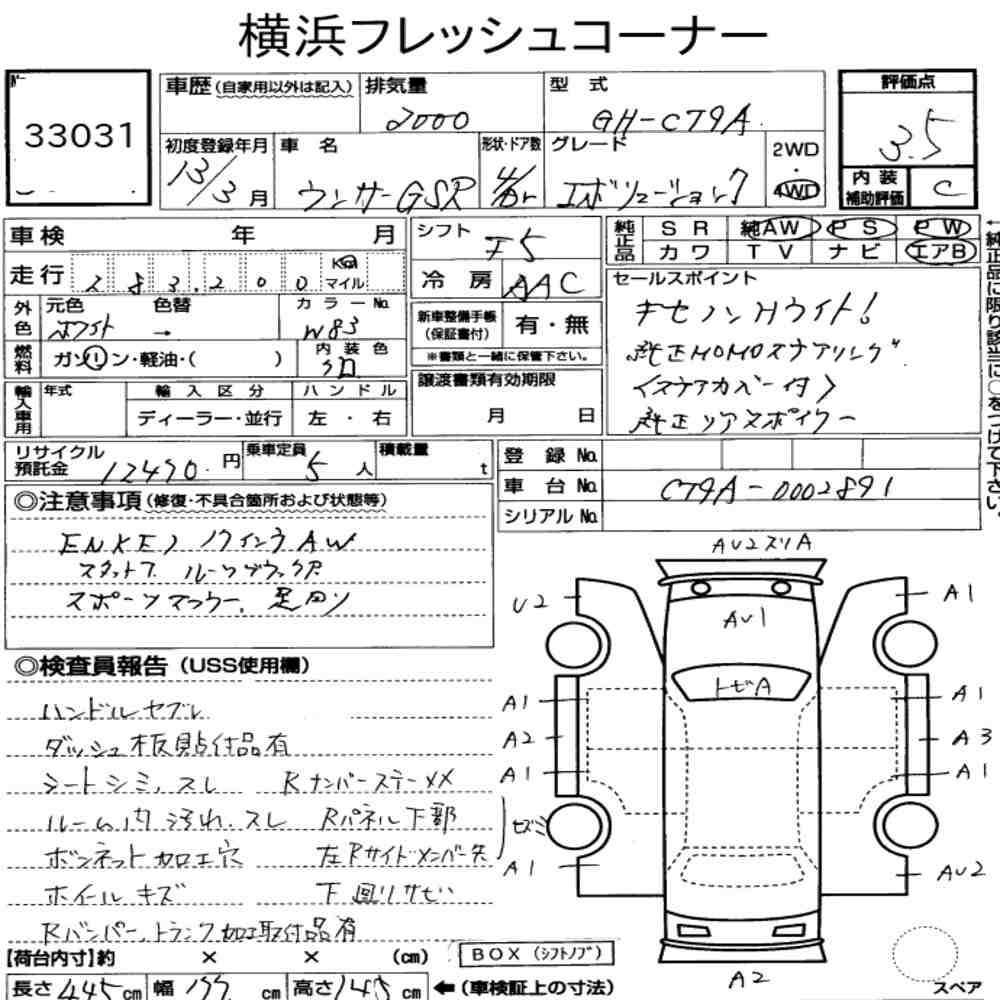 横浜フレッシュコーナー
33031
車歴(自家用以外は記入) 排気量 2000 型式 GH-CT9A
評価点 3.5
初度登録年月 13/3月 車名 ランサーGSR 形状・ドア数 4Dr グレード エボリューション7 2WD・4WD
内装補助評価 C
車検 年 月
シフト F5
純正品 SR 純AW PS PW
カワ TV ナビ エアB
走行 283,200 Km マイル
冷房 AAC
セールスポイント
キセノンHライト!
純正MOMOステアリング
(ステアカバー付)
純正リアスポイラー
外色 元色 ホワイト 色替 → カラーNo. W83
新車整備手帳(保証書付) 有・無
※書類と一緒に保管下さい。
燃料 ガソリン・軽油・( ) 内装色 クロ
譲渡書類有効期限
月 日
輸入車用 年式 輸入区分 ディーラー・並行 ハンドル 左・右
リサイクル預託金 12490円 乗車定員 5人 積載量 t
登録No.
車台No. CT9A-0002891
シリアルNo.
←純正品に限り該当に○をつけて下さい。
◎注意事項(修復・不具合箇所および状態等)
ENKEI 17インチAW
スタッドレス ルーフブラック
スポーツマフラー、足回り
◎検査員報告(USS使用欄)
ハンドルセブレ
ダッシュ板貼付品有
シートシミ、スレ Rナンバーステーメメ
ルーム内汚れ、スレ Rパネル下部
ボンネット加工穴 左Rサイドメンバー先
ホイールキズ 下回りサビ
Rバンパー、トランク加工取付品有
AU2スリA
U2
A1
AU1
トビA
A1
A1
A2
A3
A1
A1
A1
AU2
A2
【荷台内寸】約 × × (cm)
BOX(シフトノブ)
長さ445cm 幅177cm 高さ145cm ←(車検証上の寸法)
スペア